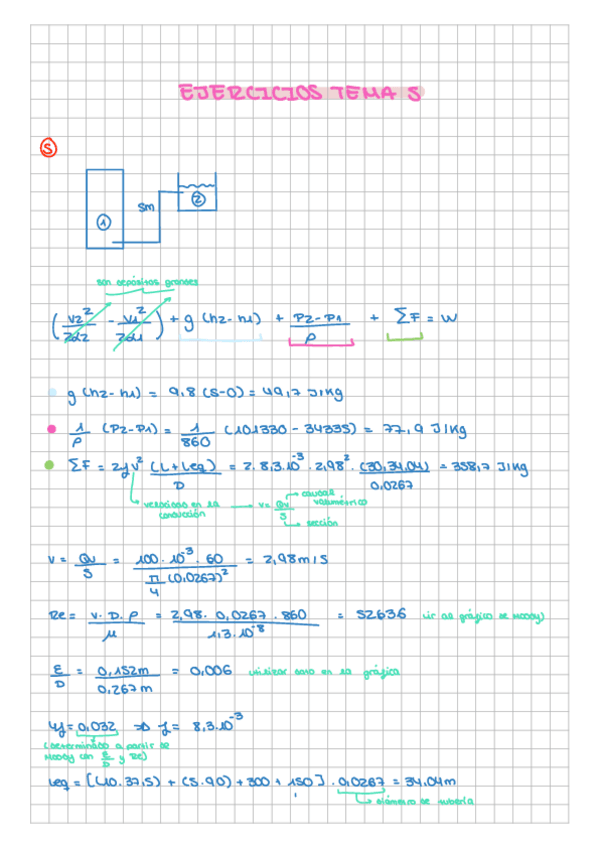 EJERCICIOS TEMA 5
5
5m
1
2
son depósitos grandes
(V2²/2α2 - V1²/2α1) + g (h2-h1) + P2-P1/ρ + ΣF = W
g (h2-h1) = 9,8 (5-0) = 49,7 J/Kg
1/ρ (P2-P1) = 1/860 (101330 - 34335) = 77,9 J/Kg
ΣF = 2fv² (L+Leq)/D = 2·8,3·10⁻³ · 2,98² · (30,34,04)/0,0267 = 358,7 J/Kg
velocidad en la conducción → v = Qv/S → caudal volumétrico
→ sección
v = Qv/S = 100·10⁻³·60/π/4 (0,0267)² = 2,98 m/s
Re = v·D·ρ/μ = 2,98·0,0267·860/1,3·10⁻⁸ = 52636 (ir al gráfico de Moody)
ε/D = 0,152m/0,267m = 0,006 utilizar esto en la gráfica
4f = 0,032 ⇒ f = 8,3·10⁻³
(determinado a partir de
Moody con ε/D y Re)
Leq = [(10·37,5) + (5·90) + 300 + 150] · 0,0267 = 34,04m
→ diámetro de tubería